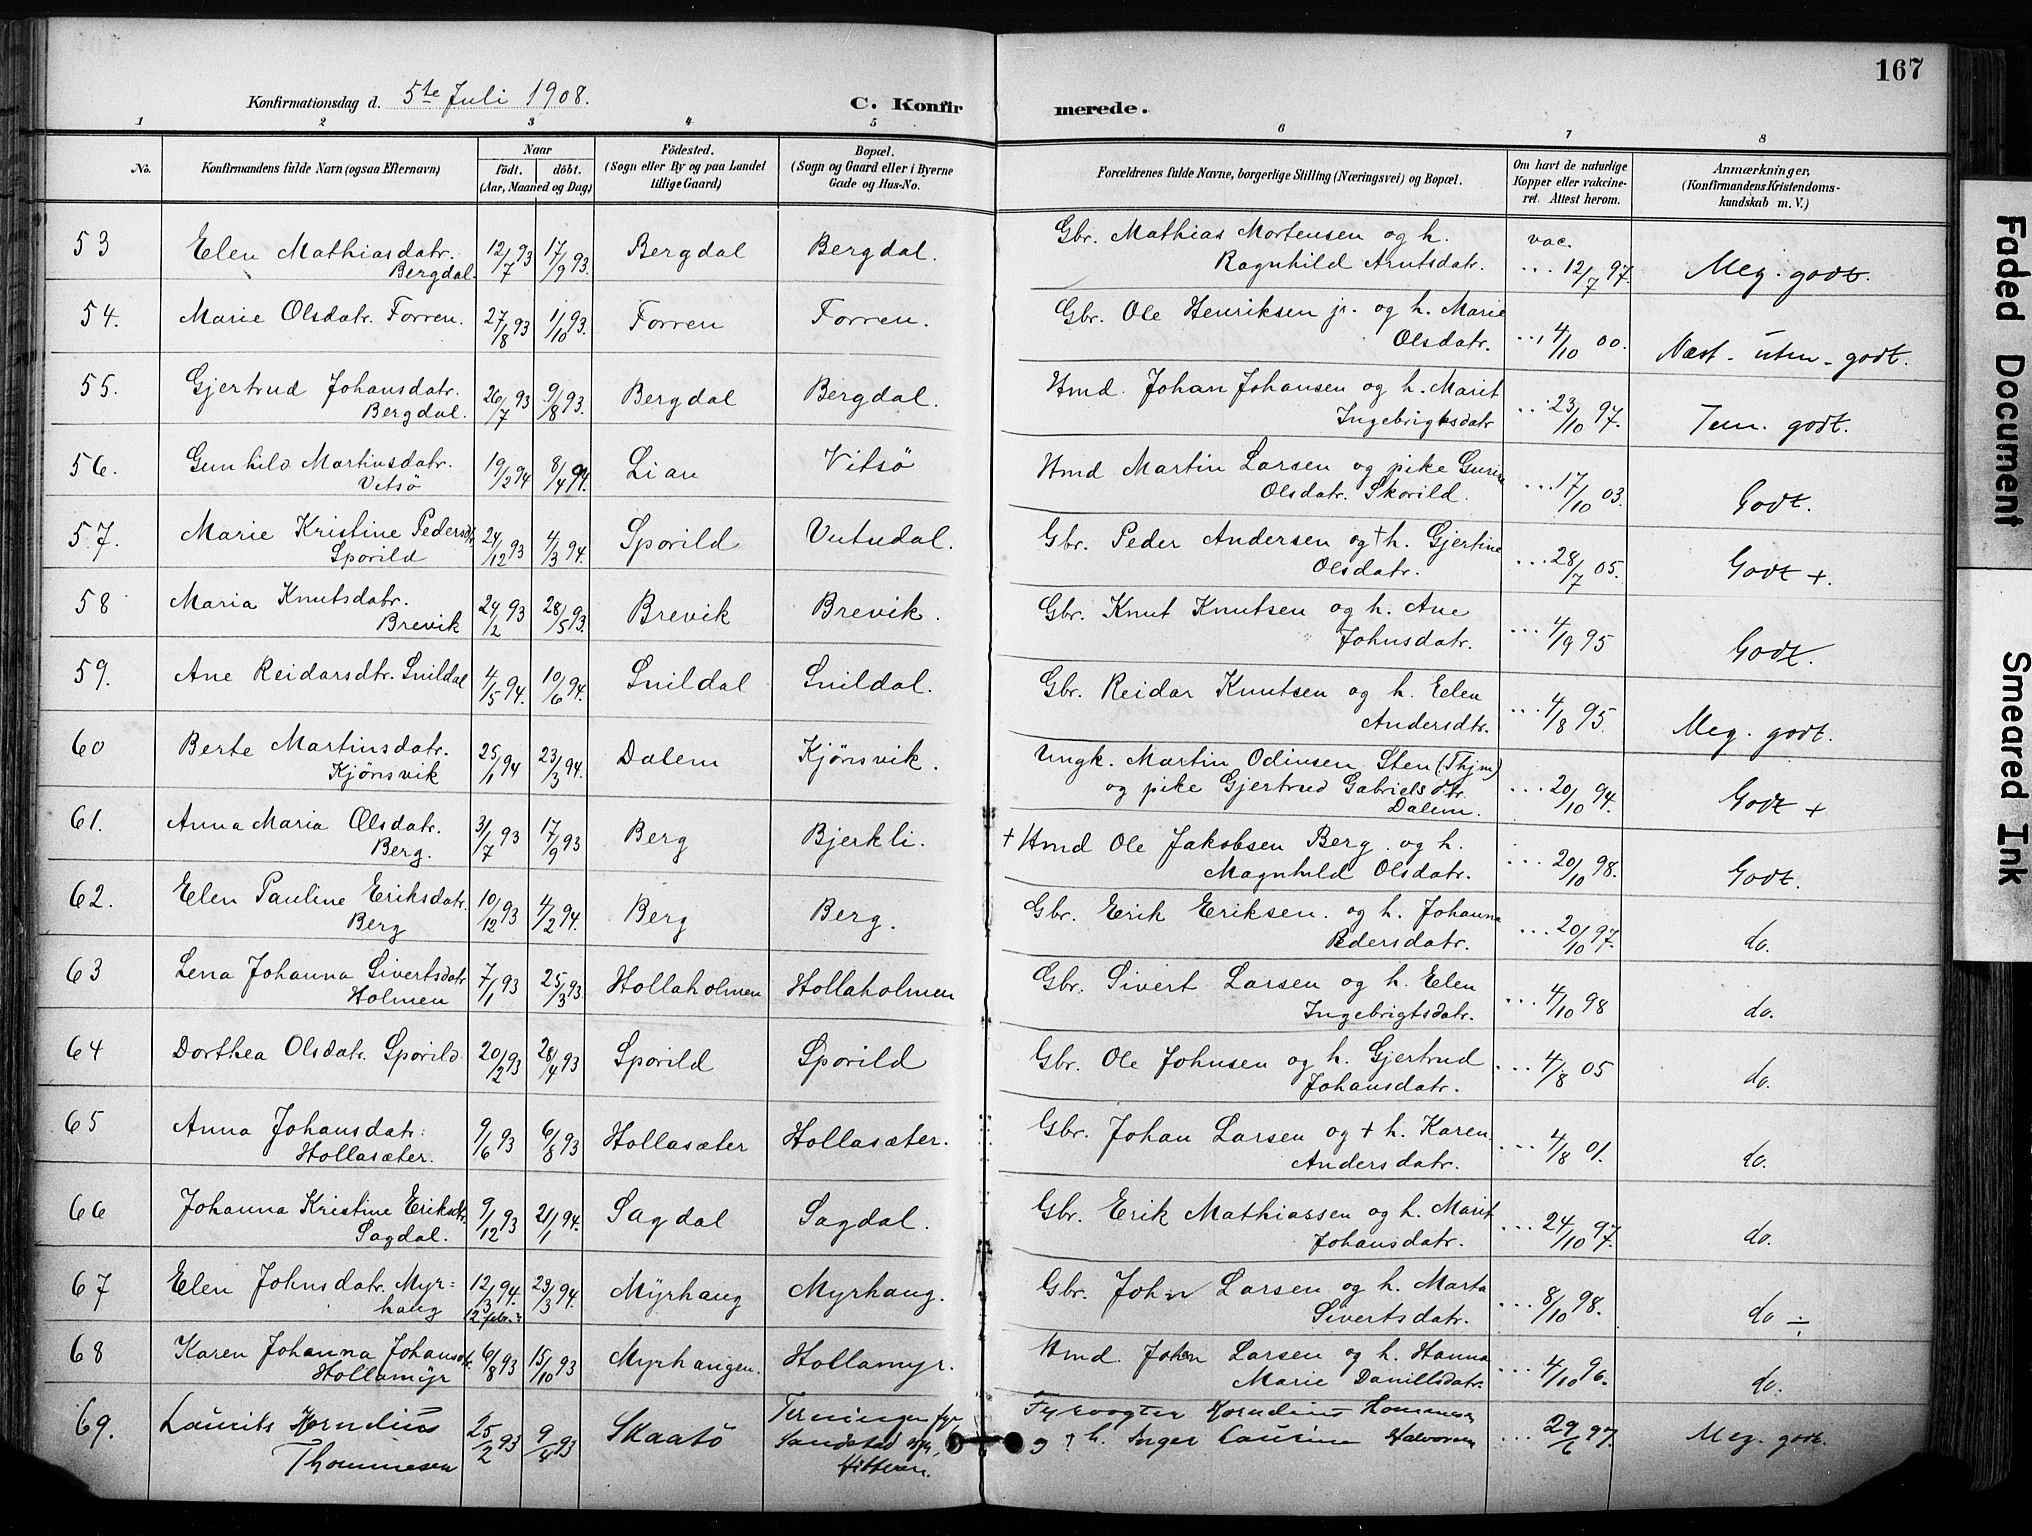 167
Konfirmationsdag d. 5te Juli 1908.
C. Konfirmerede.
1 2 3 4 5 6 7 8
No.
Konfirmandens fulde Navn (ogsaa Efternavn)
Naar
födt. döbt.
(Aar, Maaned og Dag)
Födested.
(Sogn eller By og paa Landet
tillige Gaard)
Bopæl.
(Sogn og Gaard eller i Byerne
Gade og Hus-No.
Forældrenes fulde Navne, borgerlige Stilling (Næringsvei) og Bopæl.
Om havt de naturlige
Kopper eller vakcine-
ret. Attest herom.
Anmærkninger,
(Konfirmandens Kristendoms-
kundskab m. V.)
53 Elen Mathiasdatr. Bergdal. 12/7 93 17/9 93. Bergdal Bergdal. Gbr. Mathias Mortensen og h. Ragnhild Arntsdatr. vac. ... 12/7 97. Meg. godt.
54. Marie Olsdatr. Forren. 27/8 93 1/10 93. Forren Forren. Gbr. Ole Henriksen jr. og h. Marie Olsdatr. ... 4/10 00. Næst-uten-godt.
55. Gjertrud Johansdatr. Bergdal. 26/7 93 9/8 93. Bergdal Bergdal. Hmd. Johan Johansen og h. Marit Ingebrigtsdatr ... 23/10 97. Tem. godt.
56. Gunhild Martinsdatr. Vitsö 19/2 94 8/4 94. Lian Vitsö Hmd Martin Larsen og pike Gurine Olsdatr. Skorild. ... 17/10 03. Godt.
57. Marie Kristine Pedersdt. Sporild 24/12 93 4/3 94. Sporild Vutudal. Gbr. Peder Andersen og + h. Gjertine Olsdatr. ... 28/7 05. Godt +.
58 Maria Knutsdatr. Brevik 24/2 93 28/5 93. Brevik Brevik. Gbr. Knut Knutsen og h. Ane Johnsdatr. ... 4/9 95 Godt.
59. Ane Reidarsdtr. Snildal 4/5 94. 10/6 94. Snildal Snildal. Gbr. Reidar Knutsen og h. Elen Andersdtr. ... 4/8 95. Meg. godt.
60 Berte Martinsdatr. Kjönsvik 25/1 94 23/3 94. Dalem Kjönsvik. Ungk. Martin Odinsen Sten (Thjm) og pike Gjertrud Gabrielsdtr. Dalem. ... 20/10 94. Godt +
61. Anna Maria Olsdatr. Berg. 31/7 93 17/9 93 Berg Bjerkli. + Hmd Ole Jakobsen Berg. og h. Magnhild Olsdatr. ... 20/10 98. Godt.
62. Elen Pauline Eriksdatr. Berg 10/12 93 4/2 94. Berg Berg. Gbr. Erik Eriksen. og h. Johanna Pedersdatr. ... 20/10 97. do.
63 Lena Johanna Sivertsdatr Holmen 7/1 93 25/3 93. Hollaholmen Hollaholmen Gbr. Sivert Larsen og h. Elen Ingebrigtsdatr. ... 4/10 98 do.
64 Dorthea Olsdatr. Sporild 20/2 93 28/4 93 Sporild Sporild Gbr. Ole Johnsen og h. Gjertrud Johansdatr. ... 4/8 05 do.
65 Anna Johansdatr: Hollasæter. 9/6 93 6/8 93 Hollasæter Hollasæter. Gbr. Johan Larsen og + h. Karen Andersdatr. ... 4/8 01. do.
66 Johanna Kristine Eriksdtr. Sagdal. 9/12 93 21/1 94. Sagdal Sagdal. Gbr. Erik Mathiassen og h. Marit Johansdatr. ... 24/10 97. do.
67 Elen Johnsdatr. Myr= haug 12/3 94. 12 febr.? 23/3 94. Myrhaug Myrhaug. Gbr. John Larsen og h. Marta Sivertsdatr. ... 8/10 98. do ÷
68 Karen Johanna Johansdtr. Hollamyr 6/8 93 15/10 93 Myrhaugen. Hollamyr. Hmd. Johan Larsen og h. Hanna Marie Danillsdatr. ... 4/10 96. do.
69. Laurits Kornelius Thommesen 25/2 93 9/4 93 Skaatö Terningen fyr Sandstad sogn, Hitteren. Fyrvogter Kornelius Tommesen og h. Inger Halvorsen ... 29/6 97. Meg. godt.
Faded Document
Smeared Ink